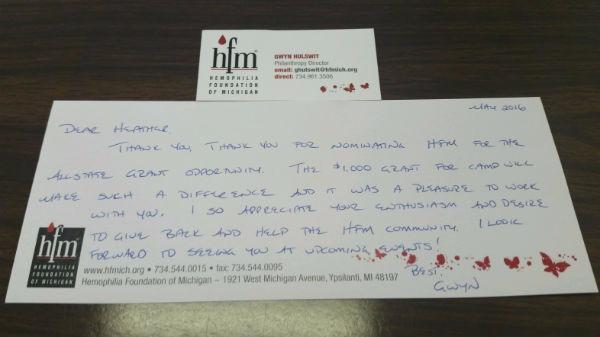 hfm
HEMOPHILIA
FOUNDATION
OF MICHIGAN
GWYN HULSWIT
Philanthropy Director
email: ghulswit@hfmich.org
direct: 734.961.3506
MAY 2016
DEAR HEATHER,
THANK YOU, THANK YOU FOR NOMINATING HFM FOR THE
ALLSTATE GRANT OPPORTUNITY. THE $1,000 GRANT FOR CAMP WILL
MAKE SUCH A DIFFERENCE AND IT WAS A PLEASURE TO WORK
WITH YOU. I SO APPRECIATE YOUR ENTHUSIASM AND DESIRE
TO GIVE BACK AND HELP THE HFM COMMUNITY. I LOOK
FORWARD TO SEEING YOU AT UPCOMING EVENTS!
BEST,
GWYN
hfm
HEMOPHILIA
FOUNDATION
OF MICHIGAN
www.hfmich.org • 734.544.0015 • fax: 734.544.0095
Hemophilia Foundation of Michigan – 1921 West Michigan Avenue, Ypsilanti, MI 48197